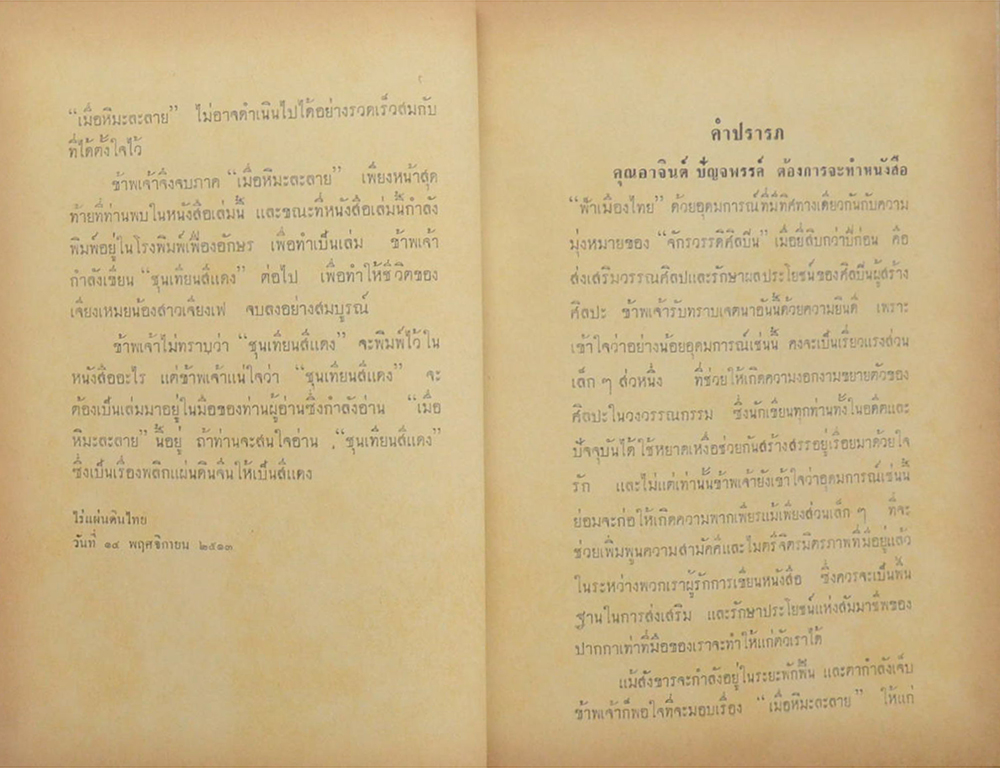 “เมื่อหิมะละลาย” ไม่อาจดำเนินไปได้อย่างรวดเร็วสมกับ
ที่ได้ตั้งใจไว้
ข้าพเจ้าจึงจบภาค “เมื่อหิมะละลาย” เพียงหน้าสุด
ท้ายที่ท่านพบในหนังสือเล่มนี้ และขณะที่หนังสือเล่มนี้กำลัง
พิมพ์อยู่ในโรงพิมพ์เฟื่องอักษร เพื่อทำเป็นเล่ม ข้าพเจ้า
กำลังเขียน “ชุนเทียนสีแดง” ต่อไป เพื่อทำให้ชีวิตของ
เจียงเหมยน้องสาวเจียงเฟ จบลงอย่างสมบูรณ์
ข้าพเจ้าไม่ทราบว่า “ชุนเทียนสีแดง” จะพิมพ์ไว้ใน
หนังสืออะไร แต่ข้าพเจ้าแน่ใจว่า “ชุนเทียนสีแดง” จะ
ต้องเป็นเล่มมาอยู่ในมือของท่านผู้อ่านซึ่งกำลังอ่าน “เมื่อ
หิมะละลาย” นี้อยู่ ถ้าท่านจะสนใจอ่าน “ชุนเทียนสีแดง”
ซึ่งเป็นเรื่องพลิกแผ่นดินจีนให้เป็นสีแดง
ไร่แผ่นดินไทย
วันที่ ๑๔ พฤศจิกายน ๒๕๑๓
คำปรารภ
คุณอาจินต์ ปัญจพรรค์ ต้องการจะทำหนังสือ
“ฟ้าเมืองไทย” ด้วยอุดมการณ์ที่มีทิศทางเดียวกันกับความ
มุ่งหมายของ “จักรวรรดิศิลปิน” เมื่อยี่สิบกว่าปีก่อน คือ
ส่งเสริมวรรณศิลปและรักษาผลประโยชน์ของศิลปินผู้สร้าง
ศิลปะ ข้าพเจ้ารับทราบเจตนาอันนี้ด้วยความยินดี เพราะ
เข้าใจว่าอย่างน้อยอุดมการณ์เช่นนี้ คงจะเป็นเรี่ยวแรงส่วน
เล็ก ๆ ส่วหนึ่ง ที่ช่วยให้เกิดความงอกงามขยายตัวของ
ศิลปะในวงวรรณกรรม ซึ่งนักเขียนทุกท่านทั้งในอดีตและ
ปัจจุบันได้ใช้หยาดเหงื่อช่วยกันสร้างสรรอยู่เรื่อยมาด้วยใจ
รัก และไม่แต่เท่านั้นข้าพเจ้ายังเข้าใจว่าอุดมการณ์เช่นนี้
ย่อมจะก่อให้เกิดความพากเพียรแม้เพียงส่วนเล็ก ๆ ที่จะ
ช่วยเพิ่มพูนความสามัคคีและไมตรีจิตรมิตรภาพที่มีอยู่แล้ว
ในระหว่างพวกเราผู้รักการเขียนหนังสือ ซึ่งควรจะเป็นพื้น
ฐานในการส่งเสริม และรักษาประโยชน์แห่งสัมมาชีพของ
ปากกาเท่าที่มือของเราจะทำให้แก่ตัวเราได้
แม้สังขารจะกำลังอยู่ในระยะพักฟื้น และตากำลังเจ็บ
ข้าพเจ้าก็พอใจที่จะมอบเรื่อง “เมื่อหิมะละลาย” ให้แก่